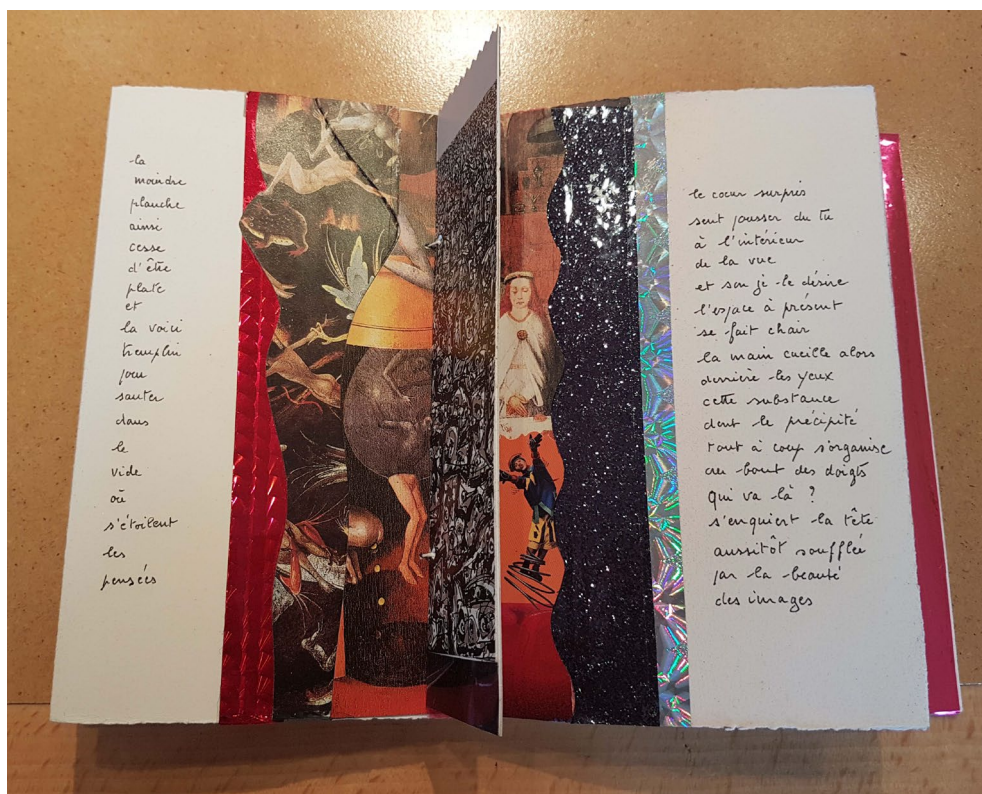 la
moindre
planche
ainsi
cesse
d'être
plate
et
la voici
tremplin
pour
sauter
dans
le
vide
où
s'étoilent
les
pensées
le cœur surpris
sent pousser du tu
à l'intérieur
de la vue
et son je le désire
l'espace à présent
se fait chair
la main cueille alors
derrière les yeux
cette substance
dont le précipité
tout à coup s'organise
au bout des doigts
qui va là ?
s'enquiert la tête
aussitôt soufflée
par la beauté
des images